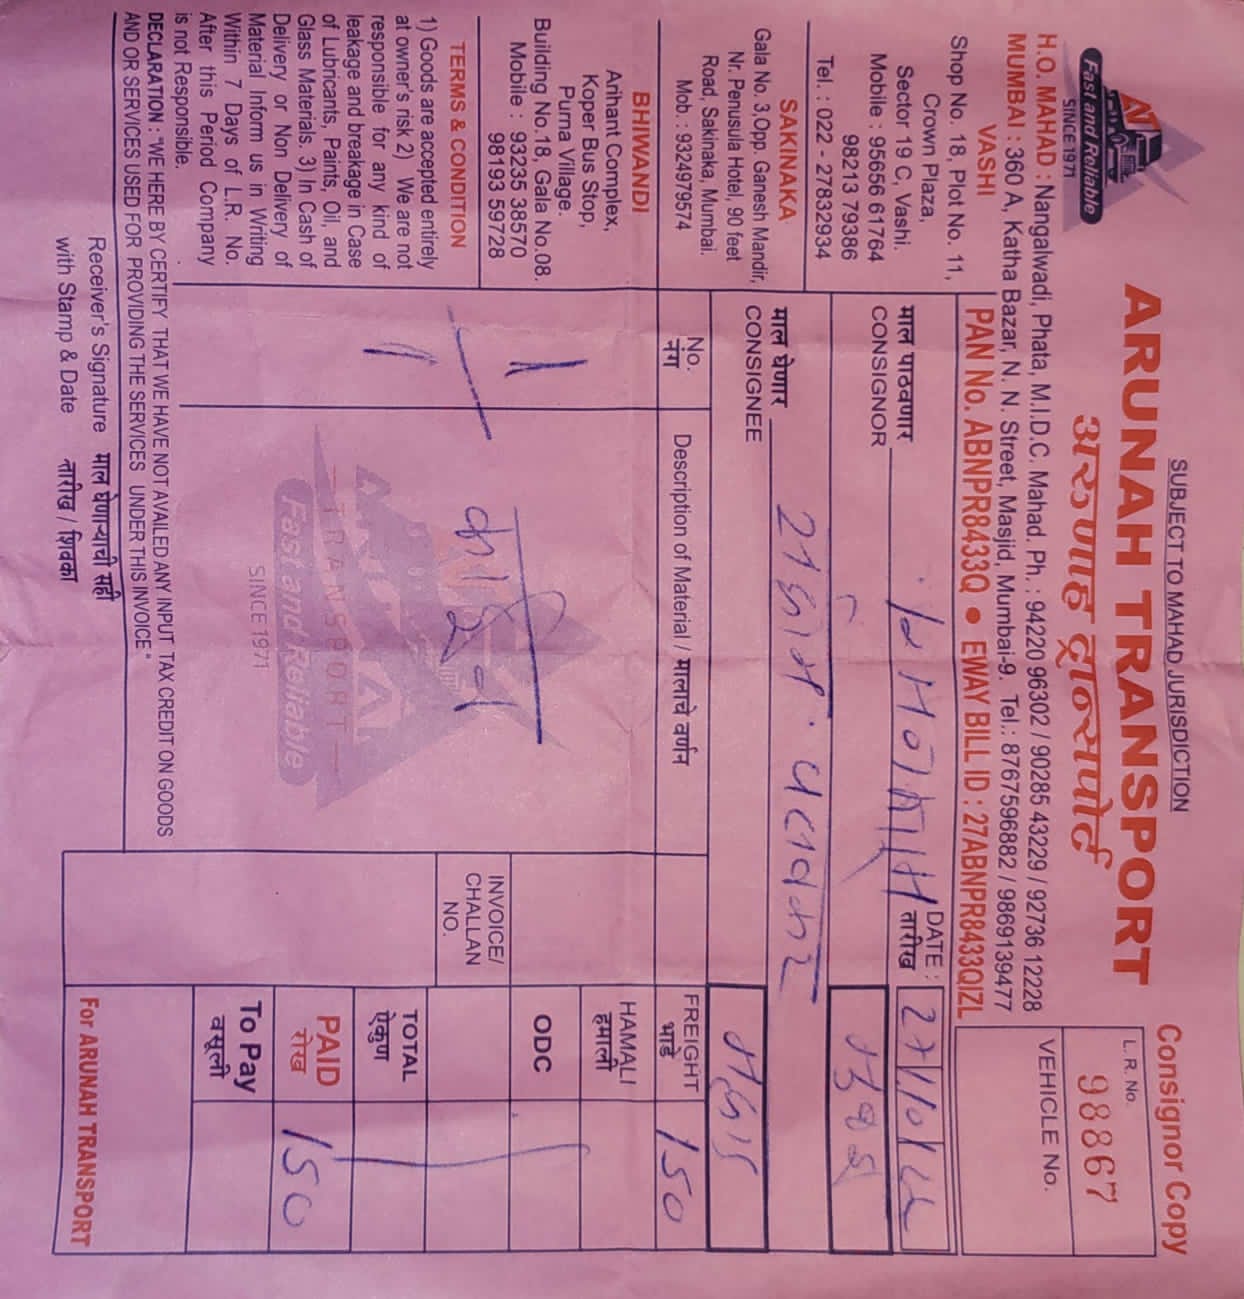 SUBJECT TO MAHAD JURISDICTION
Consignor Copy
ARUNAH TRANSPORT
अरुणाह ट्रान्सपोर्ट
Fast and Reliable
SINCE 1971
H.O. MAHAD : Nangalwadi, Phata, M.I.D.C. Mahad. Ph. : 94220 96302 / 90285 43229 / 92736 12228
MUMBAI : 360 A, Katha Bazar, N. N. Street, Masjid, Mumbai-9. Tel.: 8767596882 / 9869139477
L.R. No.
98867
VEHICLE No.
PAN No. ABNPR8433Q ● EWAY BILL ID : 27ABNPR8433QIZL
VASHI
Shop No. 18, Plot No. 11,
Crown Plaza,
Sector 19 C, Vashi.
Mobile : 95656 61764
98213 79386
Tel. : 022 - 27832934
SAKINAKA
Gala No. 3,Opp. Ganesh Mandir,
Nr. Penusula Hotel, 90 feet
Road, Sakinaka, Mumbai.
Mob. : 9324979574
BHIWANDI
Arihant Complex,
Koper Bus Stop,
Purna Village.
Building No.18, Gala No.08.
Mobile : 93235 38570
98193 59728
TERMS & CONDITION
1) Goods are accepted entirely
at owner's risk 2) We are not
responsible for any kind of
leakage and breakage in Case
of Lubricants, Paints, Oil, and
Glass Materials. 3) In Cash of
Delivery or Non Delivery of
Material Inform us in Writing
Within 7 Days of L.R. No.
After this Period Company
is not Responsible.
DATE :
तारीख
माल पाठवणार
CONSIGNOR
माल घेणार
CONSIGNEE
No.
नंग
Description of Material / मालाचे वर्णन
1
FREIGHT
भाडे
150
HAMALI
हमाली
ODC
INVOICE/
CHALLAN
NO.
TOTAL
ऐकुण
PAID
रोख
150
To Pay
वसूली
TRANSPORT
Fast and Reliable
SINCE 1971
DECLARATION : "WE HERE BY CERTIFY THAT WE HAVE NOT AVAILED ANY INPUT TAX CREDIT ON GOODS
AND OR SERVICES USED FOR PROVIDING THE SERVICES UNDER THIS INVOICE."
Receiver's Signature माल घेणाऱ्याची सही
with Stamp & Date तारीख / शिक्का
For ARUNAH TRANSPORT